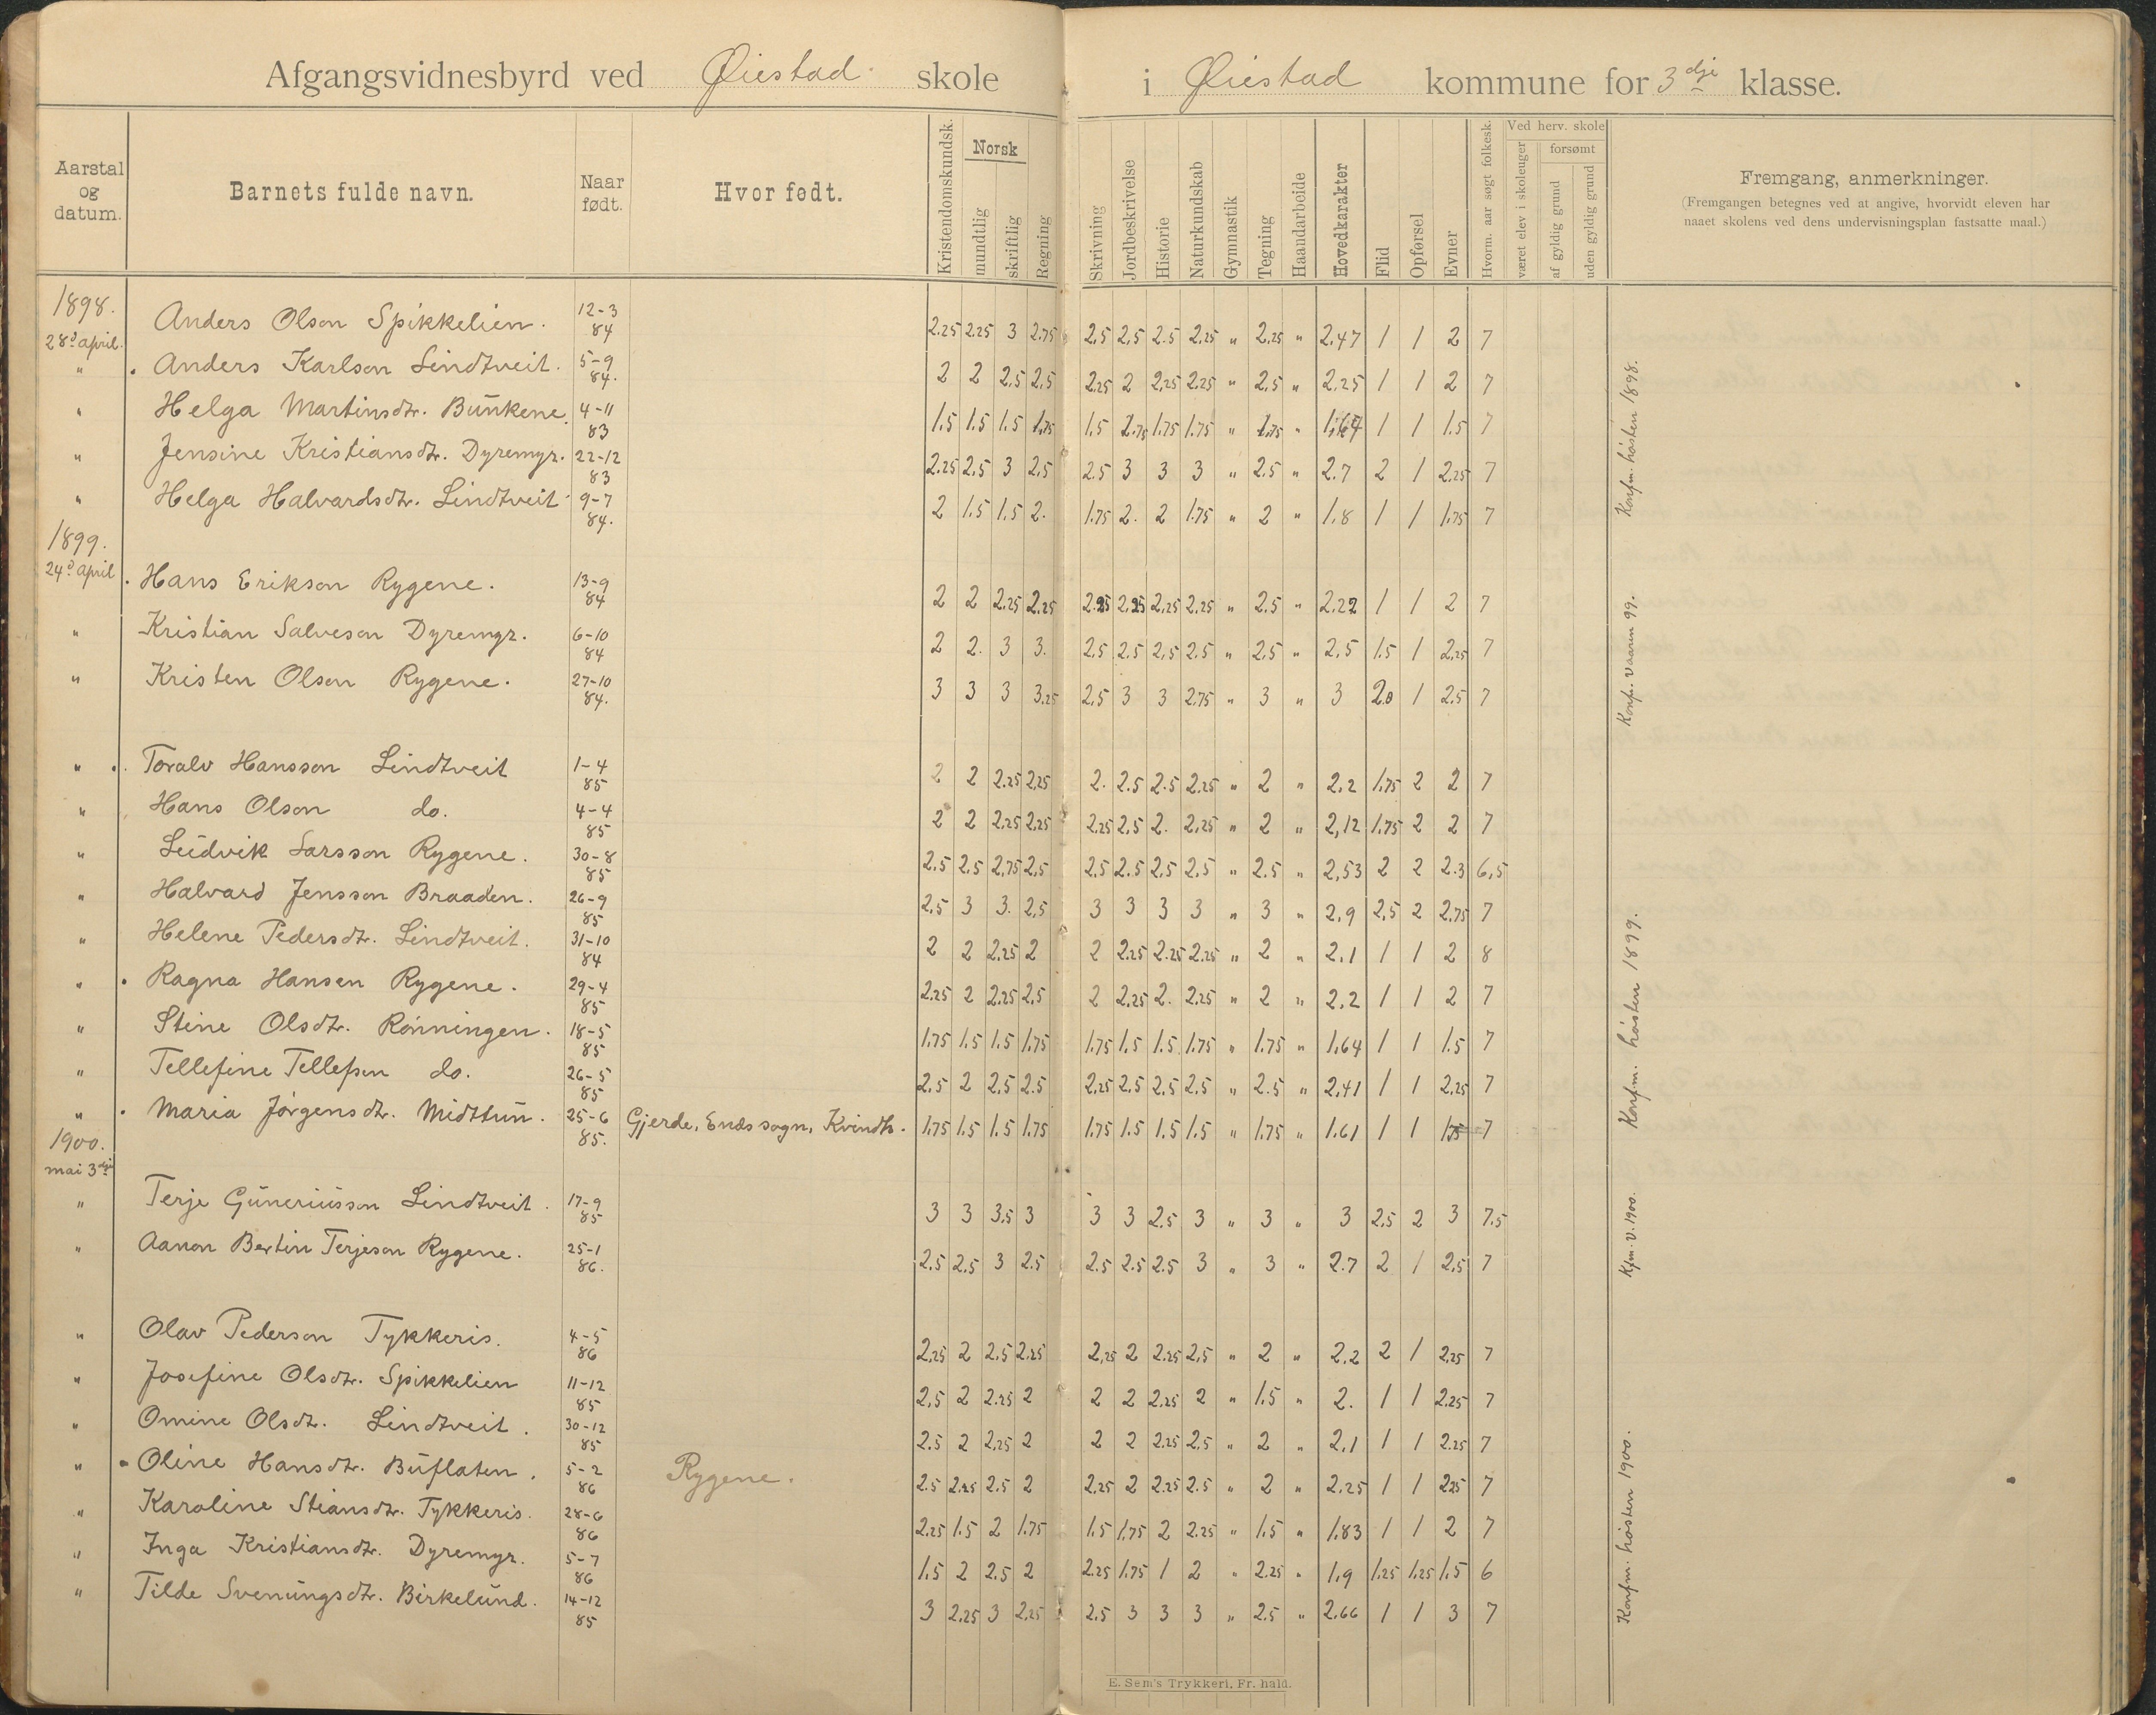 Afgangsvidnesbyrd ved Øiestad skole i Øiestad kommune for 3dje klasse.
Aarstal og datum. Barnets fulde navn. Naar født. Hvor født. Kristendomskundsk. Norsk mundtlig skriftlig Regning Skrivning Jordbeskrivelse Historie Naturkundskab Gymnastik Tegning Haandarbeide Hovedkarakter Flid Opførsel Evner Hvorm. aar søgt folkesk. Ved herv. skole været elev i skoleuger forsømt af gyldig grund uden gyldig grund Fremgang, anmerkninger.
(Fremgangen betegnes ved at angive, hvorvidt eleven har
naaet skolens ved dens undervisningsplan fastsatte maal.)
1898.
28d april. Anders Olson Spikkelien. 12-3 84 2.25 2.25 3 2.75 2,5 2,5 2.5 2,25 " 2,25 " 2,47 1 1 2 7
" Anders Karlson Lindtveit. 5-9 84. 2 2 2,5 2,5 2,25 2 2,25 2,25 " 2,5 " 2,25 1 1 2 7
" Helga Martinsdtr. Bunkene. 4-11 83 1.5 1.5 1.5 1,75 1,5 1.75 1.75 1.75 " 1.75 " 1,64 1 1 1.5 7
" Jensine Kristiansdtr. Dyremyr. 22-12 83 2.25 2.5 3 2,5 2.5 3 3 3 " 2.5 " 2.7 2 1 2,25 7
" Helga Halvardsdtr. Lindtveit 9-7 84. 2 1.5 1.5 2. 1.75 2. 2 1.75 " 2 " 1.8 1 1 1.75 7
Konfm. høsten 1898.
1899.
24d april Hans Erikson Rygene. 13-9 84 2 2 2.25 2.25 2.25 2.25 2,25 2,25 " 2.5 " 2.22 1 1 2 7
" Kristian Salveson Dyremyr. 6-10 84 2 2. 3 3. 2,5 2.5 2,5 2.5 " 2,5 " 2,5 1.5 1 2,25 7
" Kristen Olson Rygene. 27-10 84. 3 3 3 3.25 2,5 3 3 2.75 " 3 " 3 2.0 1 2.5 7
Konf. vaaren 99.
" Toralv Hansson Lindtveit 1-4 85 2 2 2.25 2,25 2. 2.5 2.5 2.25 " 2 " 2,2 1,75 2 2 7
" Hans Olson do. 4-4 85 2 2 2,25 2,25 2,25 2,5 2. 2,25 " 2 " 2,12 1,75 2 2 7
" Ludvik Larsson Rygene. 30-8 85 2,5 2,5 2,75 2,5 2,5 2.5 2,5 2,5 " 2.5 " 2,53 2 2 2.3 6,5
" Halvard Jensson Braaden. 26-9 85 2,5 3 3. 2,5 3 3 3 3 " 3 " 2,9 2,5 2 2,75 7
" Helene Pedersdtr. Lindtveit. 31-10 84 2 2 2,25 2 2 2.25 2.25 2.25 " 2 " 2,1 1 1 2 8
" Ragna Hansen Rygene. 29-4 85 2,25 2 2,25 2,5 2 2,25 2. 2,25 " 2 " 2,2 1 1 2 7
" Stine Olsdtr. Rønningen. 18-5 85 1.75 1.5 1.5 1.75 1.75 1,5 1.5 1.75 " 1.75 " 1,64 1 1 1.5 7
" Tellefine Tellefsen do. 26-5 85 2,5 2 2,5 2.5 2,25 2,5 2,5 2,5 " 2.5 " 2,41 1 1 2,25 7
" Maria Jørgensdtr. Midttun. 25-6 85. Gjerde, Enæs sogn, Kvindh. 1.75 1.5 1.5 1.75 1.75 1.5 1.5 1.5 " 1.75 " 1.61 1 1 1.75 7
Konfm. høsten 1899.
1900.
mai 3dje
" Terje Guneriusson Lindtveit. 17-9 85 3 3 3.5 3 3 3 2,5 3 " 3 " 3 2,5 2 3 7.5
" Aanon Bertin Terjeson Rygene. 25-1 86. 2.5 2.5 3 2.5 2.5 2.5 2.5 3 " 3 " 2.7 2 1 2,5 7
Kfm. v. 1900.
" Olav Pederson Tykkeris. 4-5 86 2,25 2 2,5 2.25 2,25 2 2.25 2,5 " 2 " 2,2 2 1 2,25 7
" Josefine Olsdtr. Spikkelien 11-12 85 2,5 2 2.25 2 2 2 2,25 2 " 1,5 " 2. 1 1 2.25 7
" Omine Olsdtr. Lindtveit. 30-12 85 2.5 2 2,25 2 2 2 2.25 2,5 " 2 " 2,1 1 1 2.25 7
" Oline Hansdtr. Buflaten. 5-2 86 Rygene. 2.5 2.25 2.5 2 2,25 2 2.25 2.5 " 2 " 2.25 1 1 2.25 7
" Karoline Stiansdtr. Tykkeris. 28-6 86 2.25 1.5 2 1.75 1.5 1,75 2 2.25 " 1.5 " 1.83 1 1 2 7
" Inga Kristiansdtr. Dyremyr. 5-7 86 1.5 2 2.5 2 2.25 1.75 1 2 " 2.25 " 1,9 1.25 1.25 1.5 6
" Tilde Svenungsdtr. Birkelund. 14-12 85 3 2.25 3 2,25 2.5 3 3 3 " 2.5 " 2.66 1 1 3 7
Konfm. høsten 1900.
E. Sem's Trykkeri, Fr. hald.